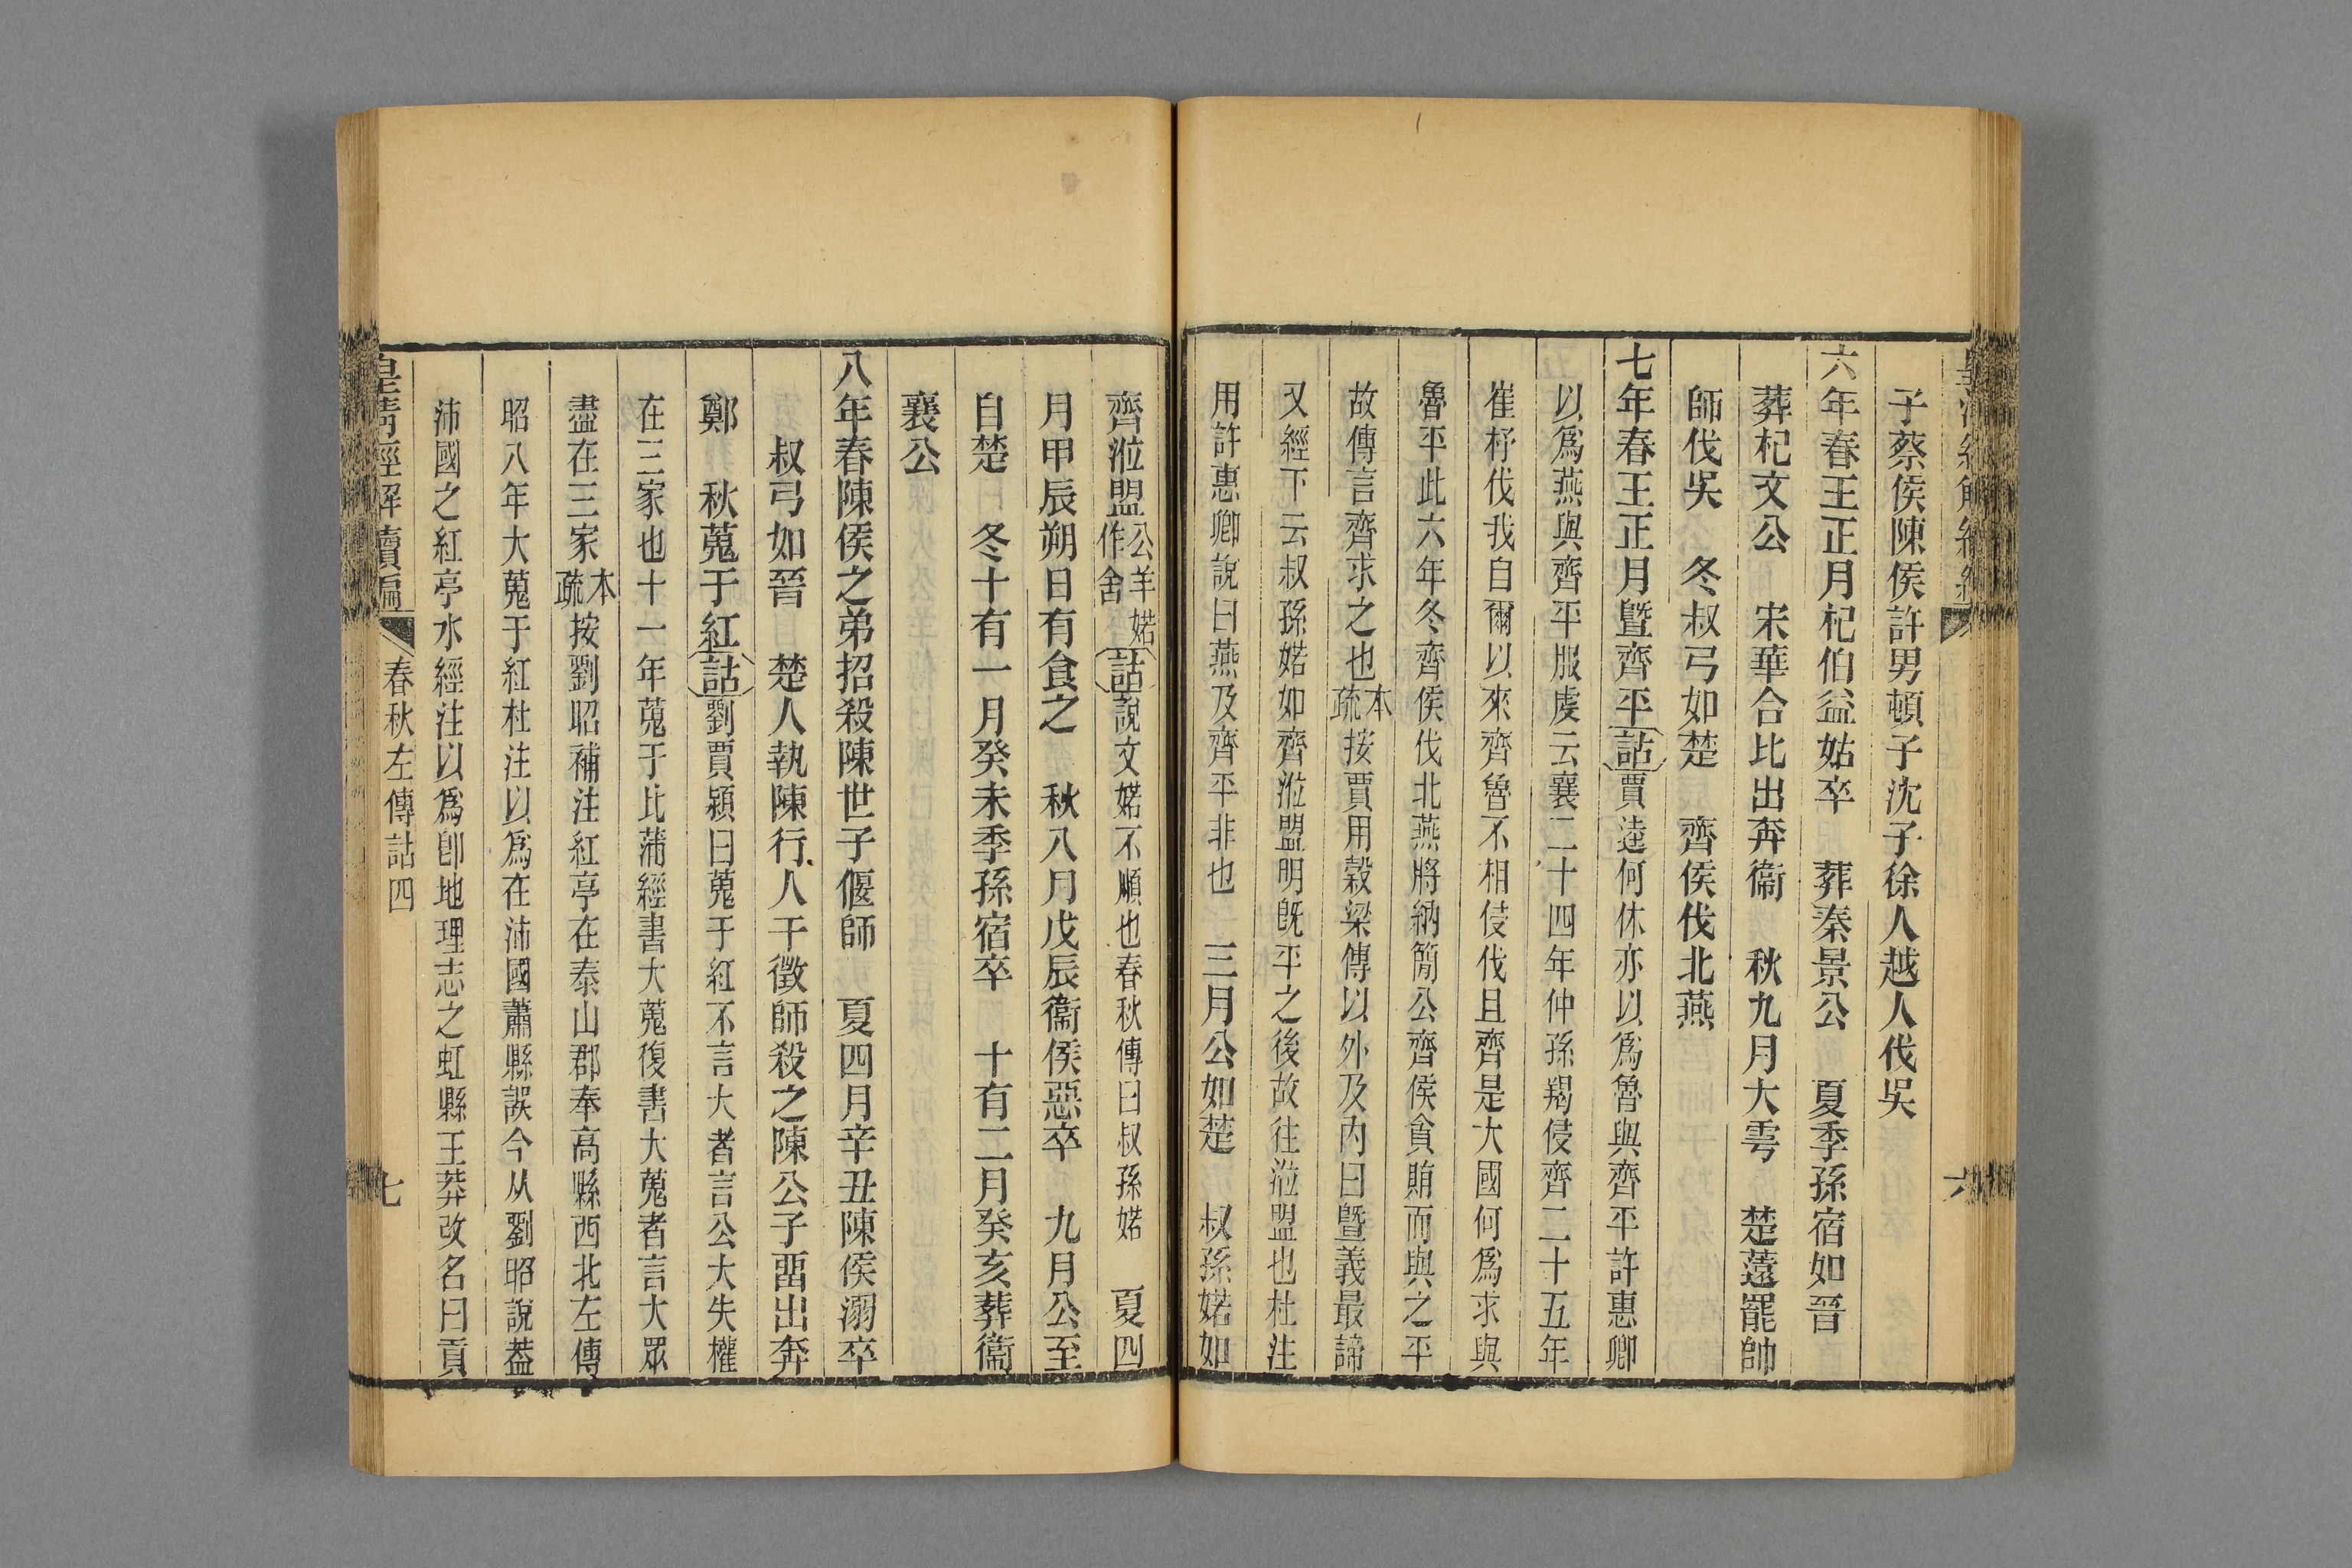 子蔡侯陳侯許男頓子沈子徐人越人伐吳
六年春王正月杞伯益姑卒　葬秦景公　夏季孫宿如晉
葬杞文公　宋華合比出奔衞　秋九月大雩　楚薳罷帥
師伐吳　冬叔弓如楚　齊侯伐北燕
七年春王正月暨齊平詁賈逵何休亦以爲魯與齊平許惠卿
以爲燕與齊平服虔云襄二十四年仲孫羯侵齊二十五年
崔杼伐我自爾以來齊魯不相侵伐且齊是大國何爲求與
魯平此六年冬齊侯伐北燕將納簡公齊侯貪賄而與之平
故傳言齊求之也本疏按賈用穀梁傳以外及內曰暨義最諦
又經下云叔孫婼如齊涖盟明旣平之後故往涖盟也杜注
用許惠卿說曰燕及齊平非也　三月公如楚　叔孫婼如
齊涖盟公羊婼作舍詁說文婼不順也春秋傳曰叔孫婼　夏四
月甲辰朔日有食之　秋八月戊辰衞侯惡卒　九月公至
自楚　冬十有一月癸未季孫宿卒　十有二月癸亥葬衞
襄公
八年春陳侯之弟招殺陳世子偃師　夏四月辛丑陳侯溺卒
叔弓如晉　楚人執陳行人干徵師殺之陳公子畱出奔
鄭　秋蒐于紅詁劉賈潁曰蒐于紅不言大者言公大失權
在三家也十一年蒐于比蒲經書大蒐復書大蒐者言大眾
盡在三家本疏按劉昭補注紅亭在泰山郡奉高縣西北左傳
昭八年大蒐于紅杜注以爲在沛國蕭縣誤今从劉昭說葢
沛國之紅亭水經注以爲卽地理志之虹縣王莽改名曰貢
皇清經解續編　春秋左傳詁四　七